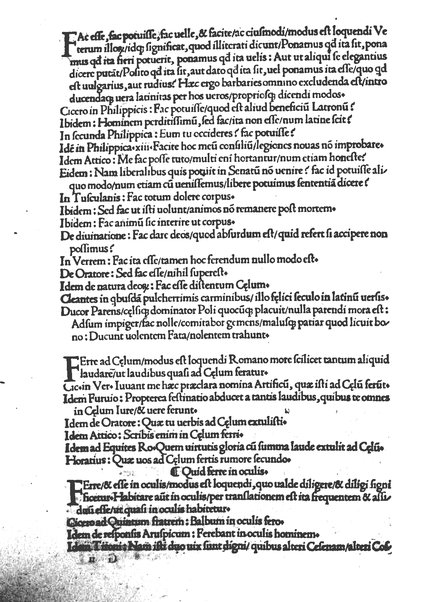 FAc esse, fac potuisse, fac uelle, & facite/ac eiusmodi/modus est loquendi Ve
terum illoꝝ/idqꝫ significat, quod illiterati dicunt/Ponamus qd ita sit, pona
mus qd ita fieri potuerit, ponamus qd ita uelis: Aut ut aliqui se elegantius
dicere putãt/Posito qd ita sit, aut dato qd ita sit, uel ponamus ita esse/quo qd
est uulgarius, aut rudius? Hæc ergo barbaries omnino excludenda est/intro
ducendaqꝫ uera latinitas per hos ueros/propriosqꝫ dicendi modos.
Cicero in Philippicis: Fac potuisse/quod est aliud beneficiũ Latronũ?
Ibidem: Hominem perditissimũ, sed fac/ita non esse/num latine scit?
In secunda Philippica: Eum tu occideres? fac potuisse?
Idẽ in Philippica.xiii. Facite hoc meũ consiliũ/legiones nouas nõ improbare.
Idem Attico: Me fac posse tuto/multi eni hortantur/num etiam honeste?
Eidem: Nam liberalibus quis potuit in Senatũ nõ uenire? fac id potuisse ali/
quo modo/num etiam cũ uenissemus/libere potuimus sententiã dicere?
In Tusculanis: Fac totum dolere corpus.
Ibidem: Sed fac ut isti uolunt/animos nõ remanere post mortem.
Ibidem: Fac animũ sic interire ut corpus.
De diuinatione: Fac dare deos/quod absurdum est/quid refert si accipere non
possimus?
In Verrem: Fac ita esse/tamen hoc ferendum nullo modo est.
De Oratore: Sed fac esse/nihil superest.
Idem de natura deoꝝ: Fac esse distentum Cęlum.
Cleantes in qbusdã pulcherrimis carminibus/illo felici seculo in latinũ uersis.
Ducor Parens/cęlsiqꝫ dominator Poli quocũqꝫ placuit/nulla parendi mora est:
Adsum impiger/fac nolle/comitabor gemens/malusqꝫ patiar quod licuit bo/
no: Ducunt uolentem Fata/nolentem trahunt.
FErre ad Cęlum/modus est loquendi Romano more scilicet tantum aliquid
laudare/ut laudibus quasi ad Cęlum feratur.
Cic. in Ver. Iuuant me hæc præclara nomina Artificũ, quæ isti ad Cęlũ ferũt.
Idem Furuio: Propterea festinatio abducet a tantis laudibus, quibus te omnes
in Cęlum Iure/& uere ferunt.
Idem de Oratore: Quæ tu uerbis ad Cęlum extulisti.
Idem Attico: Scribis enim in Cęlum ferri.
Idem ad Equites Ro. Quem uirtutis gloria cũ summa laude extulit ad Cęlũ.
Horatius: Quæ uos ad Cęlum fertis rumore secundo.
¶ Quid ferre in oculis.
FErre/& esse in oculis/modus est loquendi, quo ualde diligere/& diligi signi
ficetur. Habitare aũt in oculis/per translationem est ita frequentem & assi/
duũ esse/ut quasi in oculis habitetur.
Cicero ad Quintum fratrem: Balbum in oculis fero.
Idem de responsis Aruspicum: Ferebant in oculis hominem.
Idem Tironi: Nam isti duo uix sunt digni/ quibus alteri Cesenam/alteri Cos/